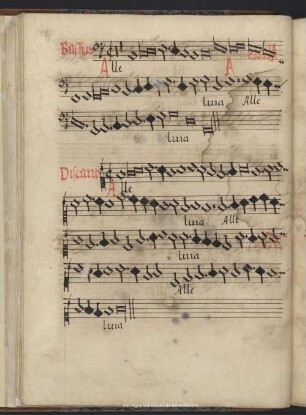 Bassus
A A
Alle
luia Alle
luia
Discant
A lle
luia Alle
luia
Alle
luia